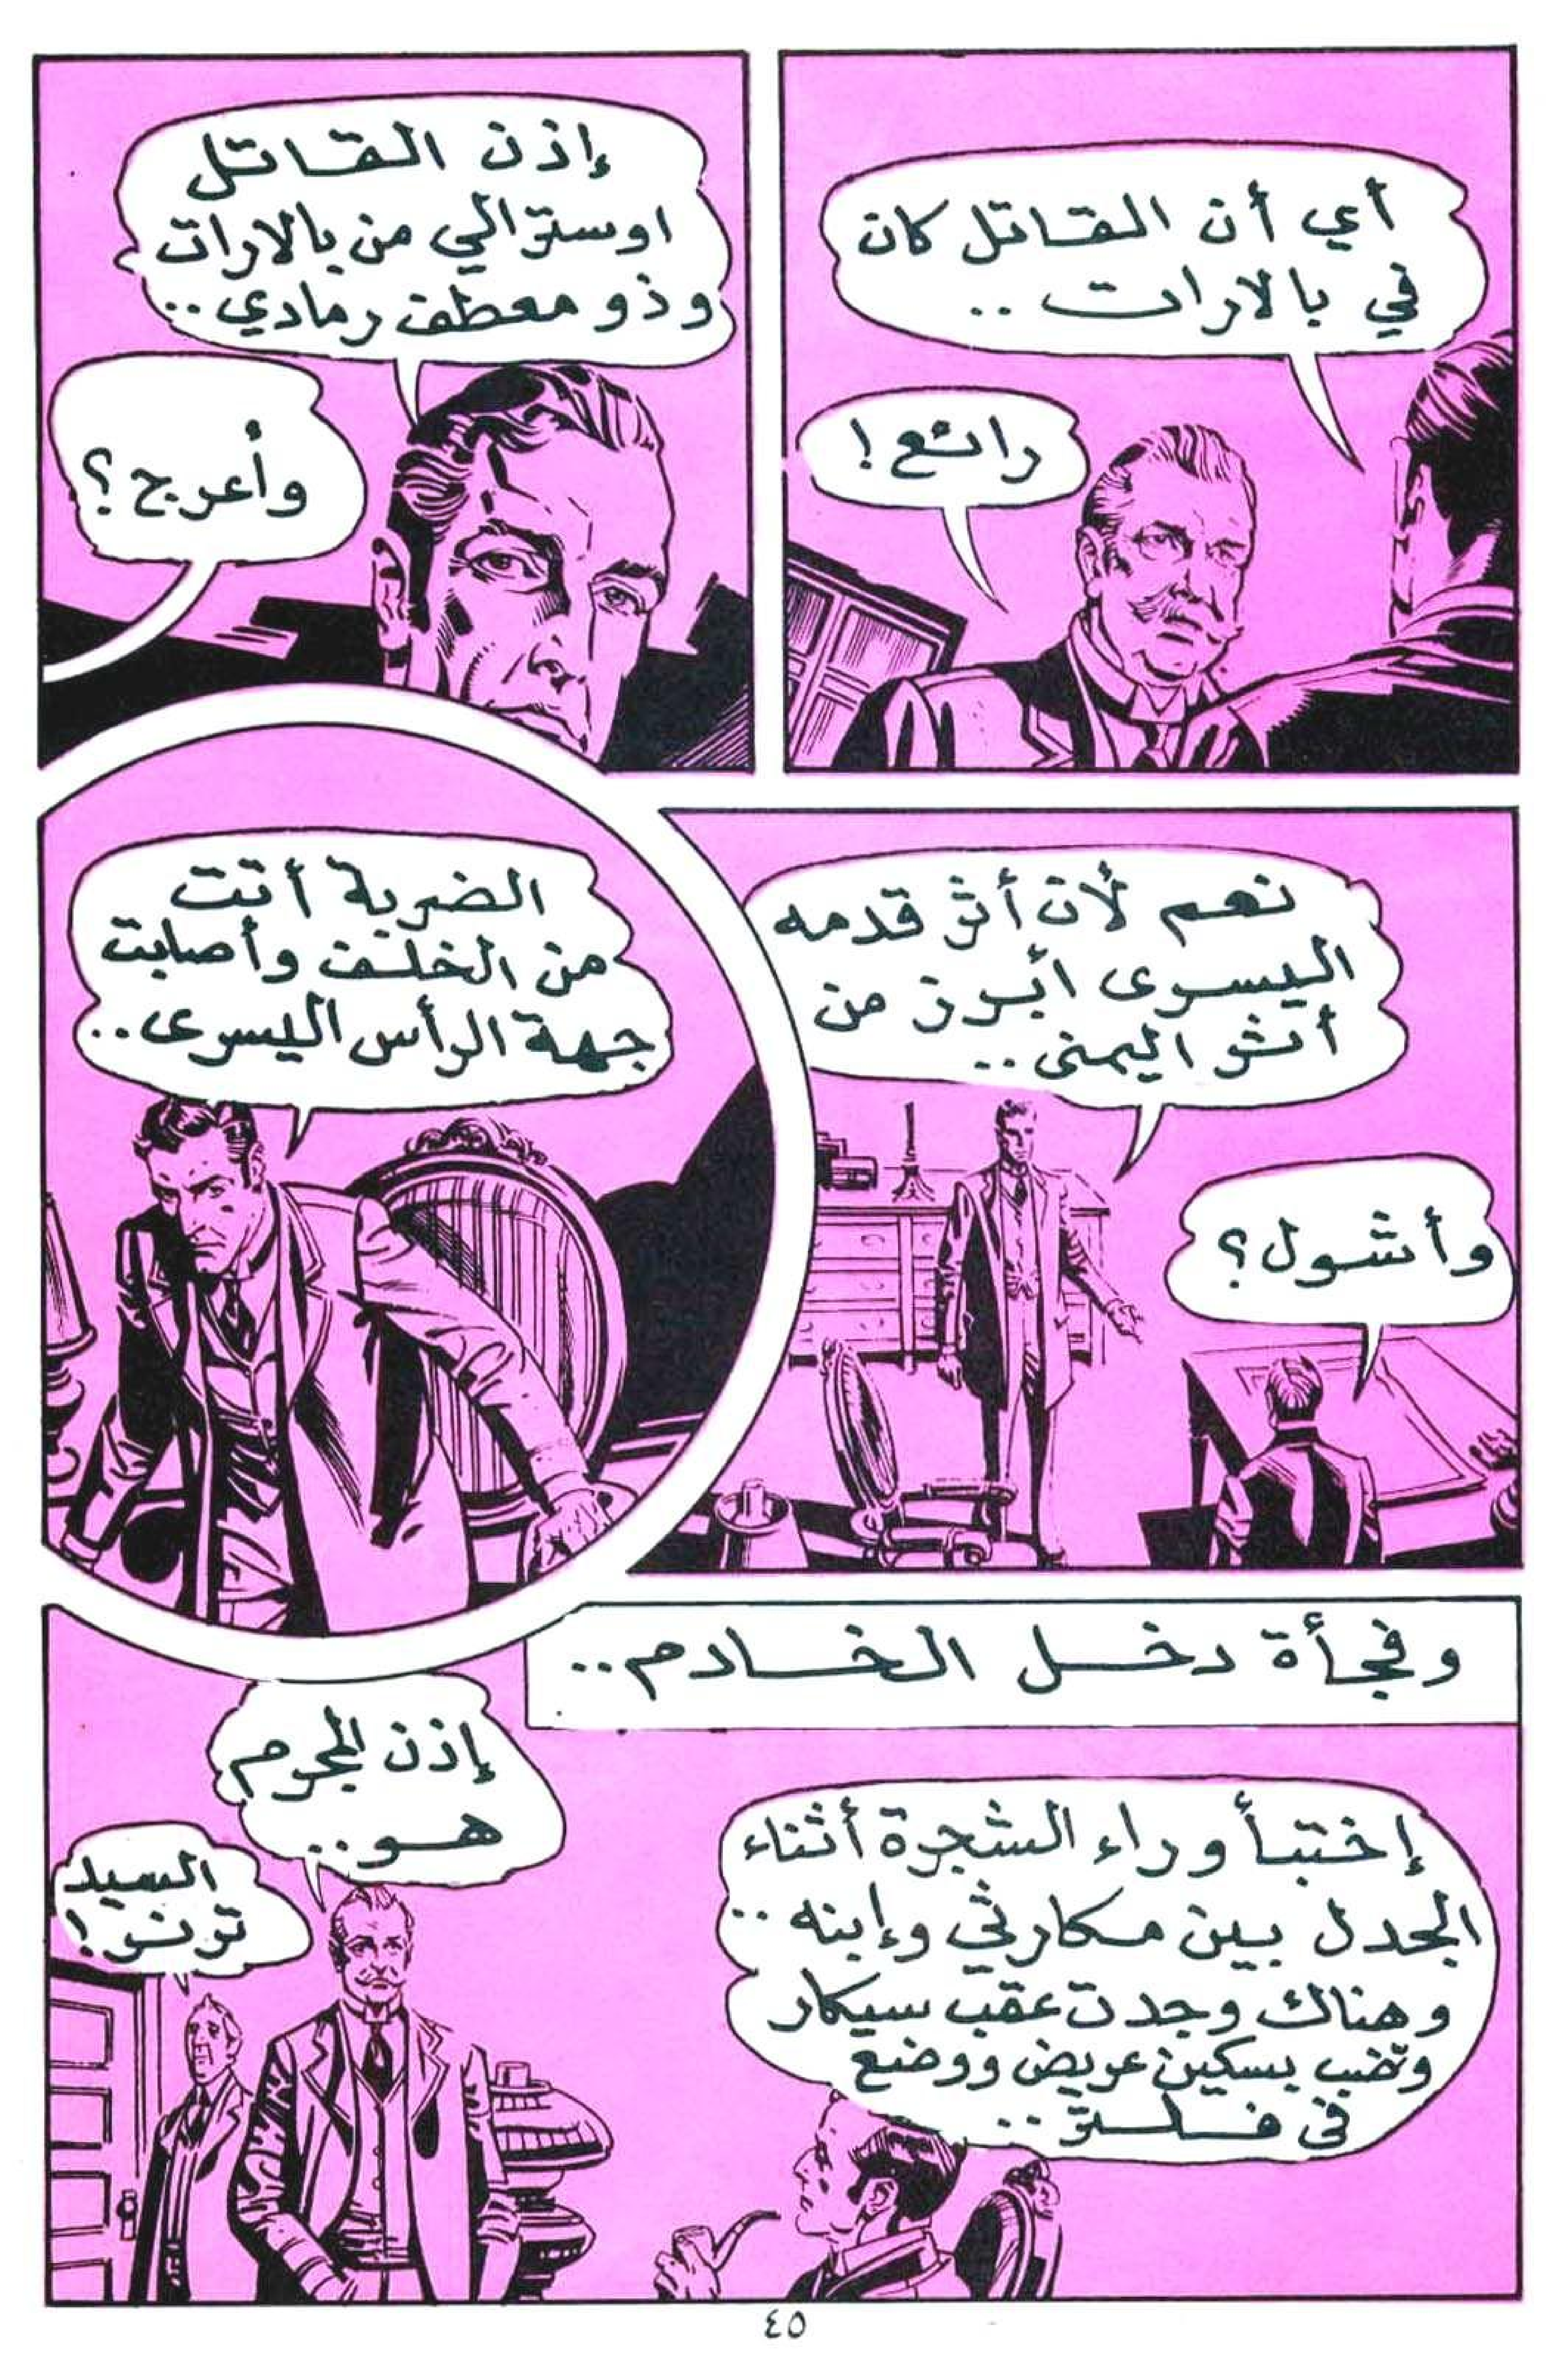 أي أن القاتل كان
في بالارات ..
رائع !
إذن القاتل
اوسترالي من بالارات
وذو معطف رمادي ..
وأعرج ؟
نعم لأن أثر قدمه
اليسرى أبرز من
أثر اليمنى ..
وأشول ؟
الضربة أتت
من الخلف وأصابت
جهة الرأس اليسرى ..
وفجأة دخل الخادم ..
إختبأ وراء الشجرة أثناء
الجدل بين مكارثي وإبنه ..
وهناك وجدت عقب سيكار
وقضب بسكين عريض ووضع
في فلتر ..
إذن المجرم
هو ..
السيد
ترنر !
٤٥